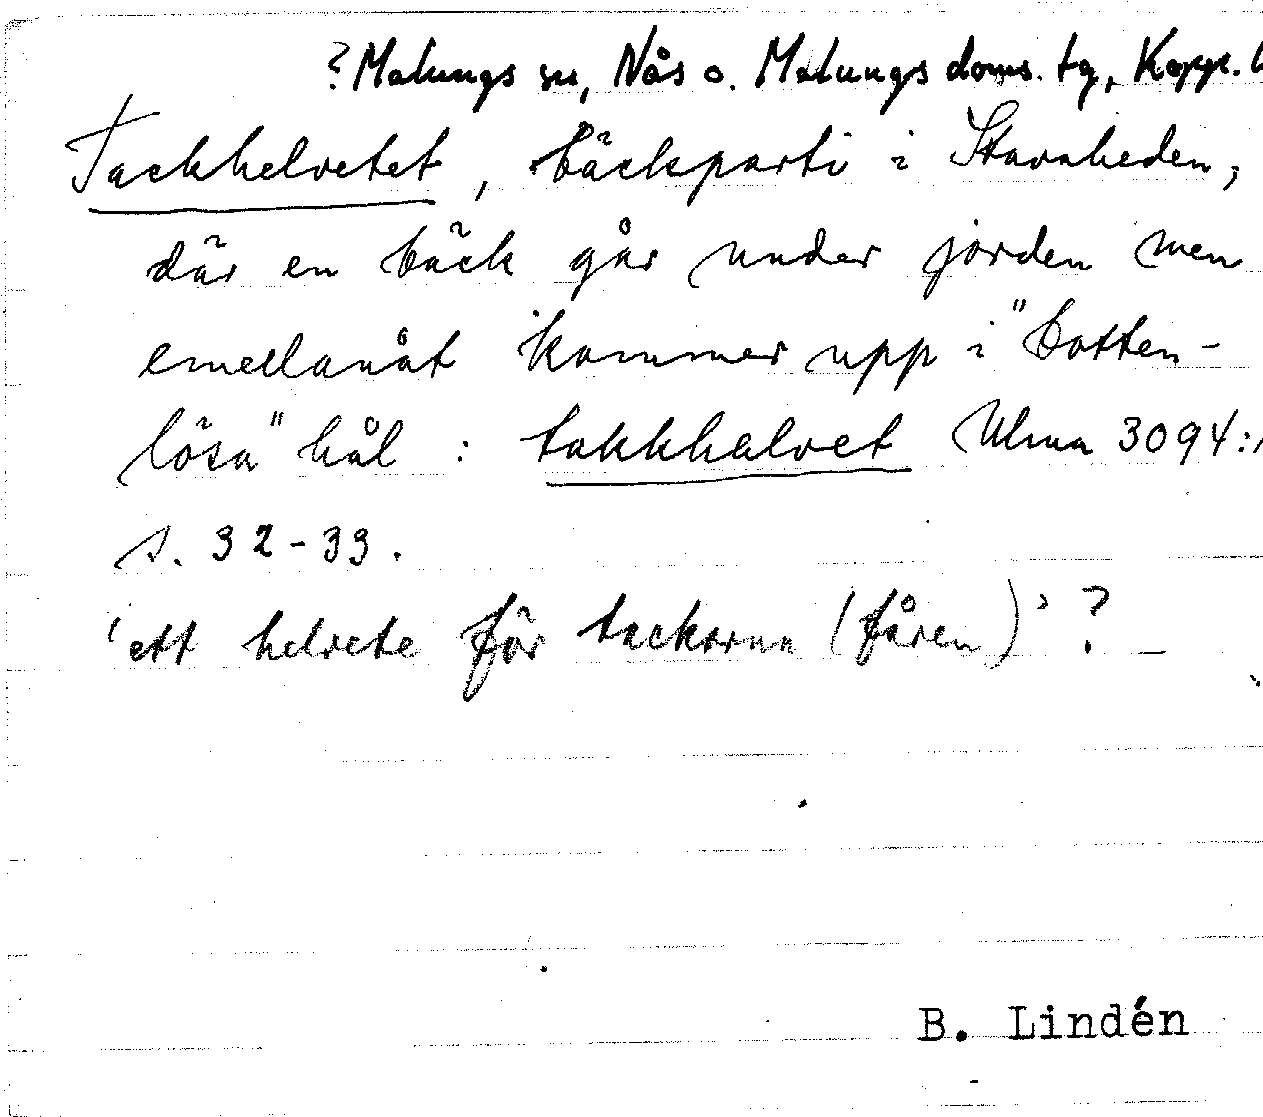 ? Malungs sn, Nås o. Malungs doms. tg, Kopp. l
Tackhelvetet, bäckparti i Stavaheden,
där en bäck går under jorden men
emellanåt kommer upp i "botten-
lösa" hål : takkhalvet Ulma 3094:1
s. 32-33.
'ett helvete för tackorna (fåren)' ?
B. Lindén